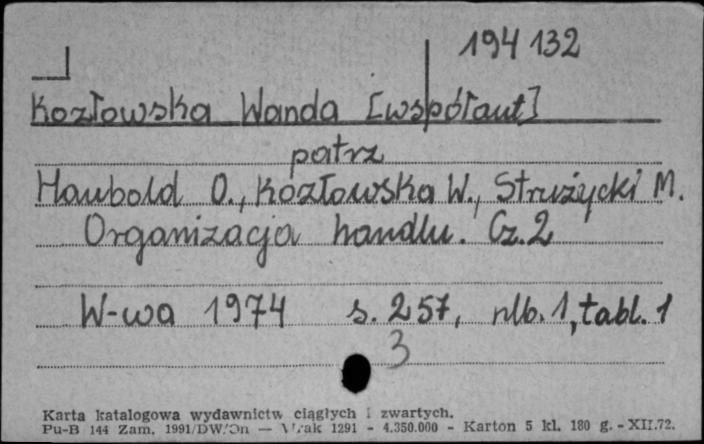 194 132
Kozłowska Wanda [współaut]
patrz
Haubold O., Kozłowska W., Strużycki M.
Organizacja handlu. Cz. 2
W-wa 1974 s. 257, nlb. 1, tabl. 1
3
Karta katalogowa wydawnictw ciągłych i zwartych.
Pu-B 144 Zam. 1991/DW/On — 1291 - 4.350.000 - Karton 5 kl. 180 g. - XII.72.